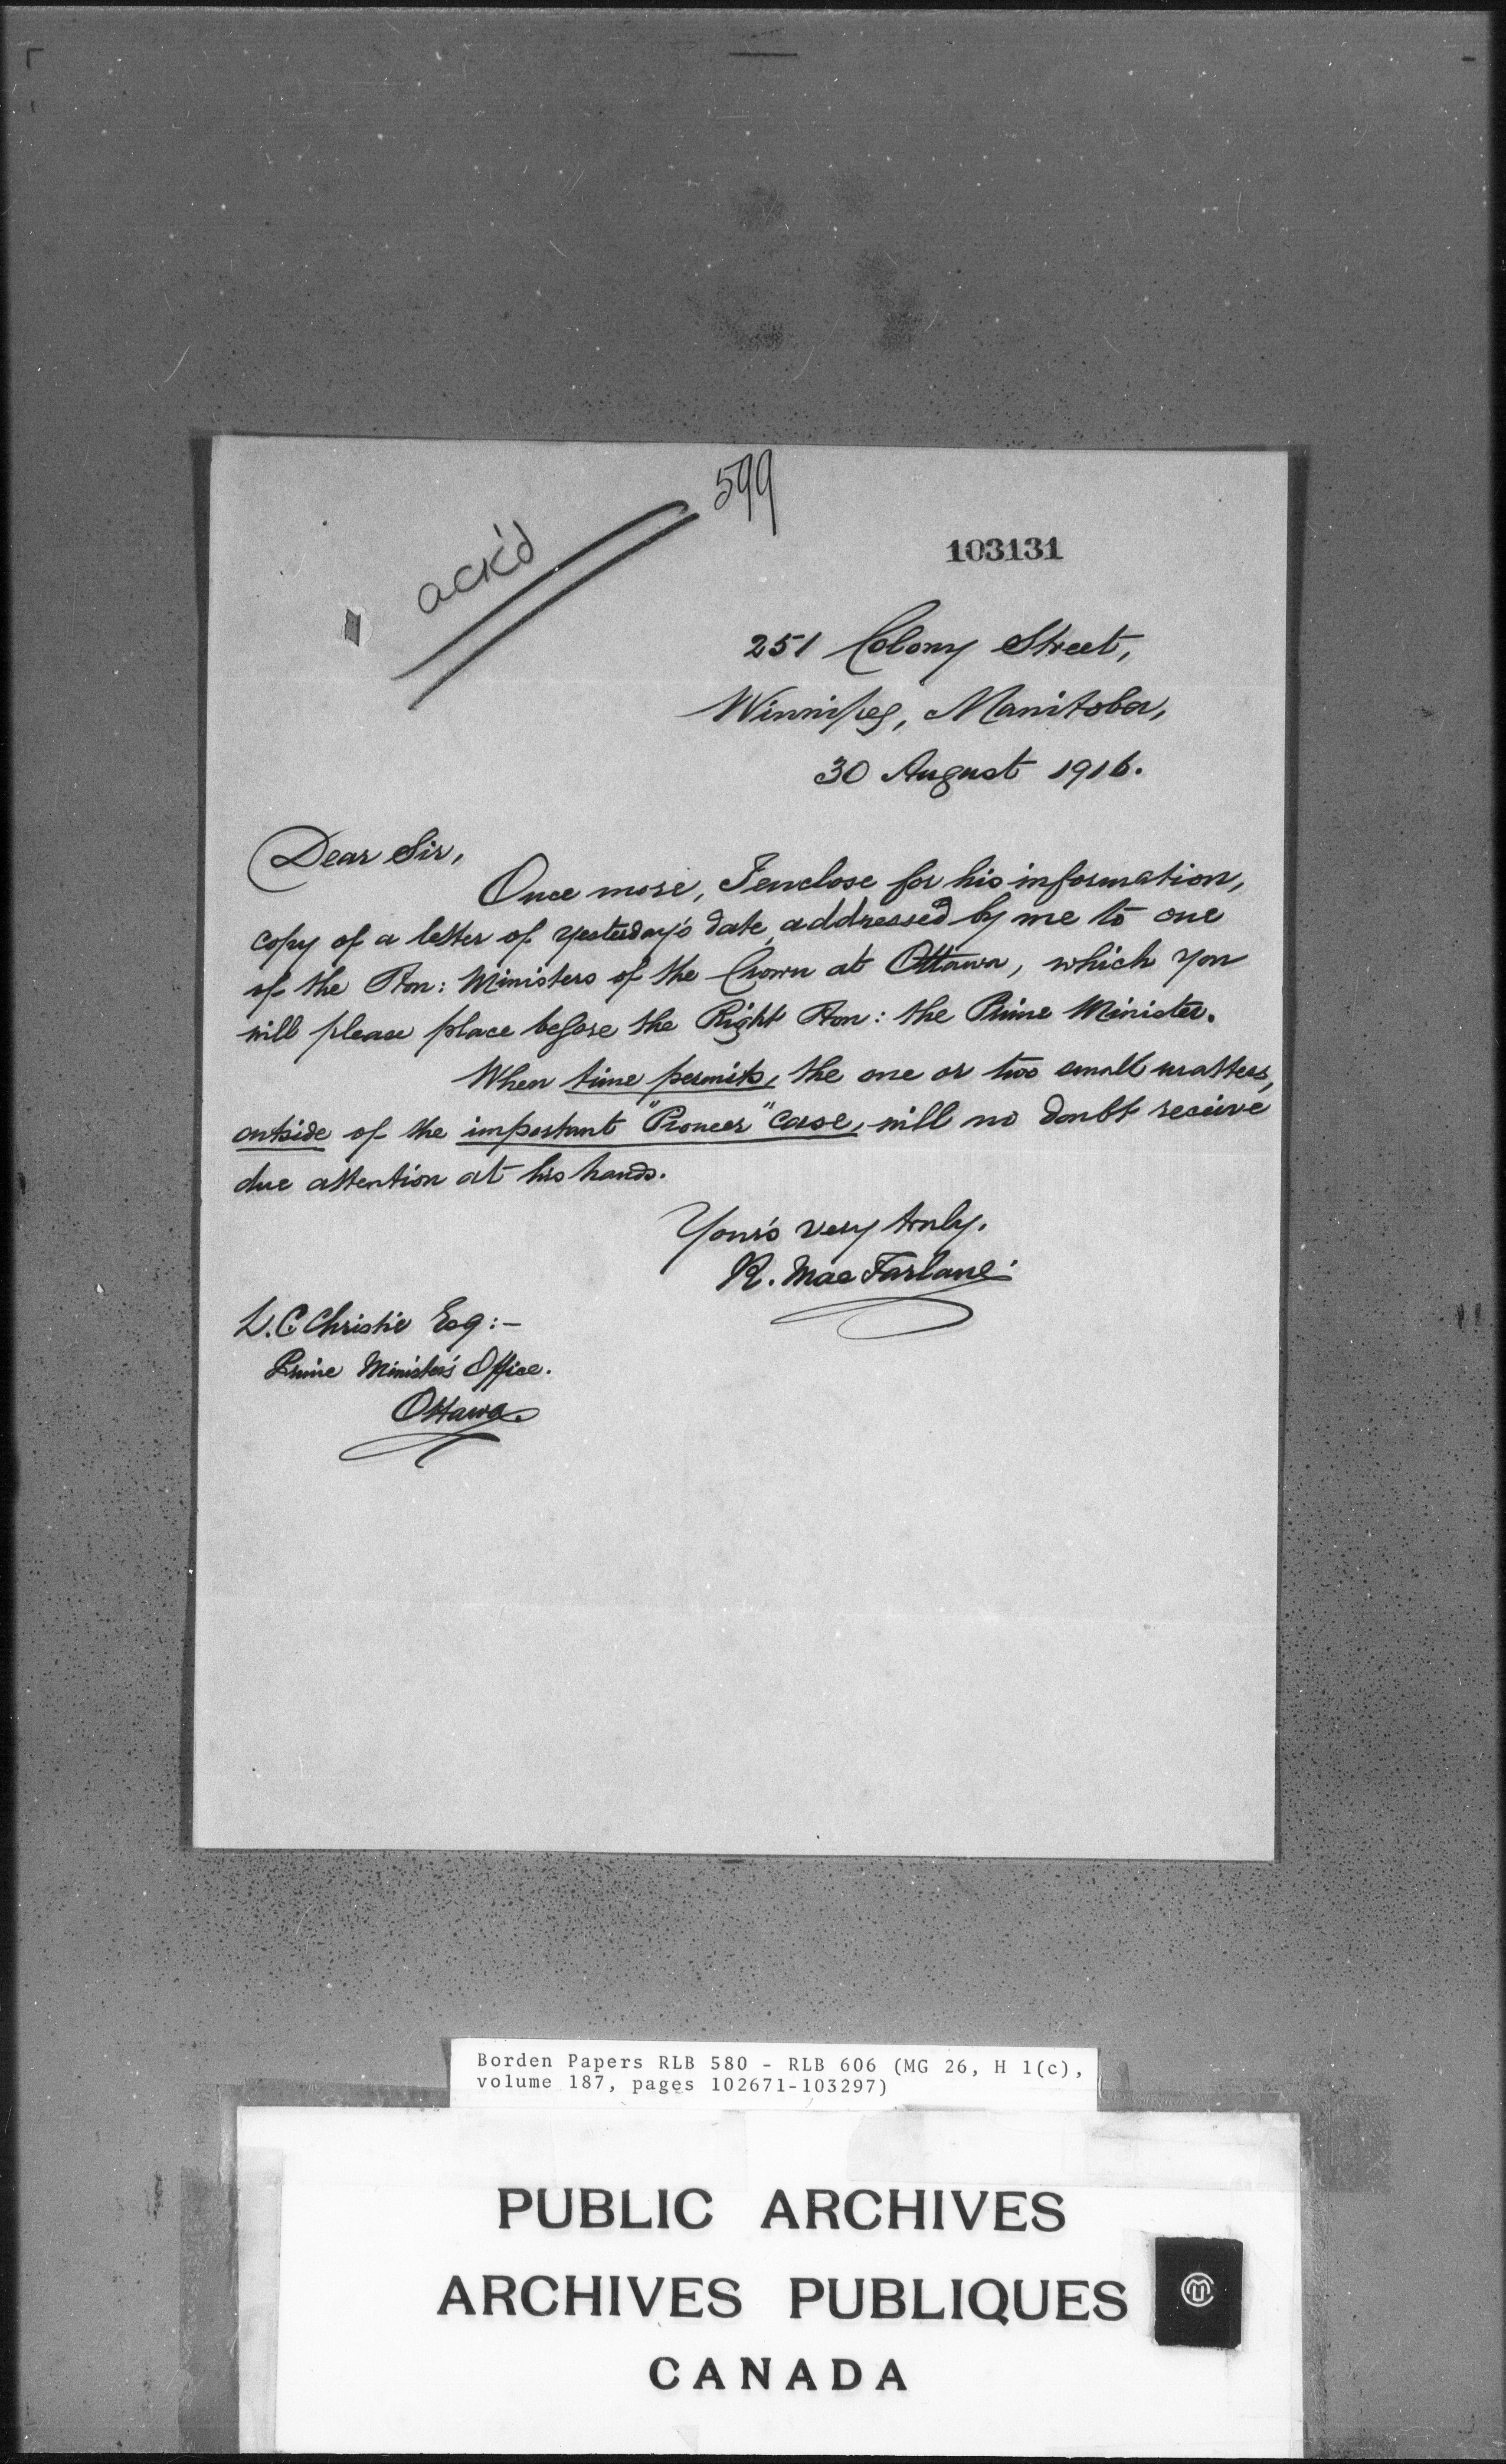 599
ack'd
103131
251 Colony Street,
Winnipeg, Manitoba,
30 August 1916.
Dear Sir,
Once more, I enclose for his information,
copy of a letter of yesterday's date, addressed by me to one
of the Hon: Ministers of the Crown at Ottawa, which you
will please place before the Right Hon: the Prime Minister.
When time permits, the one or two small matters,
outside of the important "Pioneer" case, will no doubt receive
due attention at his hands.
Your's very truly.
R. MacFarlane.
L.C. Christie Esq:-
Prime Minister's Office.
Ottawa.
Borden Papers RLB 580 - RLB 606 (MG 26, H 1(c),
volume 187, pages 102671-103297)
PUBLIC ARCHIVES
ARCHIVES PUBLIQUES
CANADA